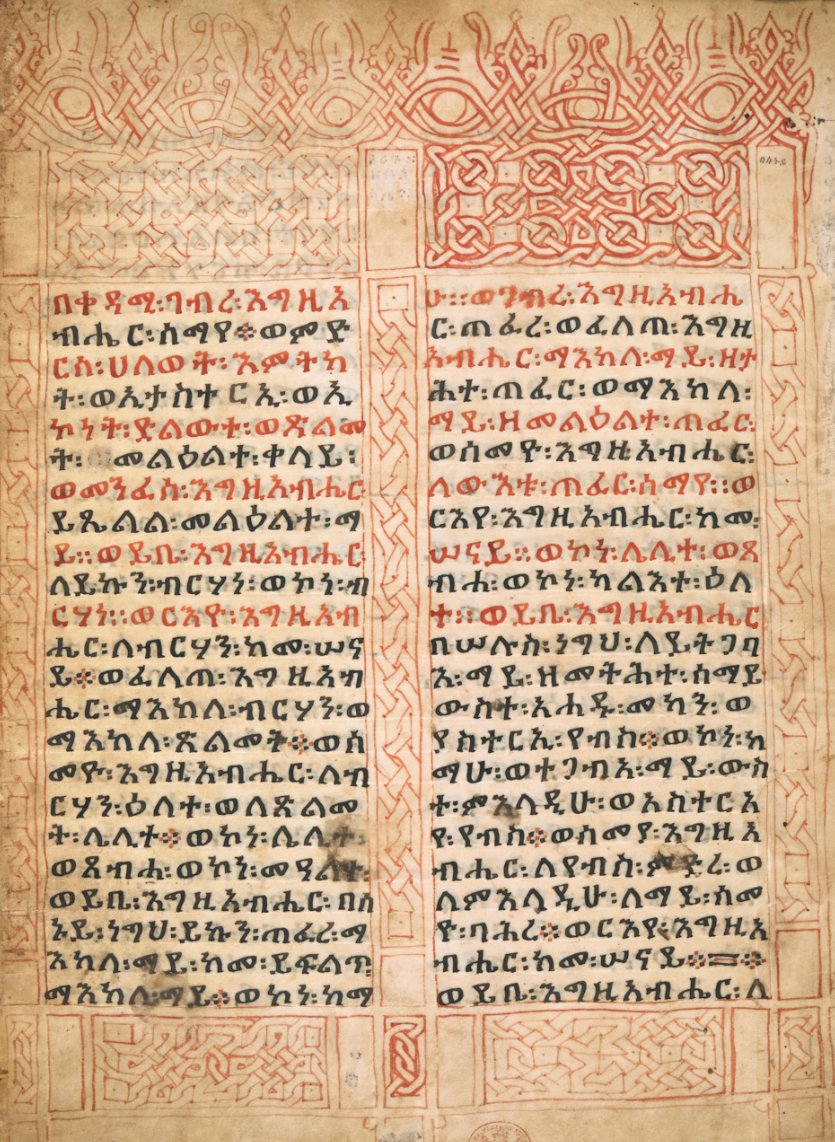 በቀዳሚ፡ገብረ፡እግዚአ
ብሔር፡ሰማየ፨ወምድ
ረሰ፡ሀለወት፡እምትካ
ት፡ወኢታስተርኢ፡ወኢ
ኮነት፡ድልውተ፡ወጽልመ
ት፡መልዕልተ፡ቀላይ፡
ወመንፈሰ፡እግዚአብሔር፡
ይጼልል፡መልዕልተ፡ማ
ይ፡፡ወይቤ፡እግዚአብሔር፡
ለይኩን፡ብርሃን፡ወኮነ፡ብ
ርሃን፡፡ወርእዮ፡እግዚአብ
ሔር፡ለብርሃን፡ከመ፡ሠና
ይ፨ወፈለጠ፡እግዚአብ
ሔር፡ማእከለ፡ብርሃን፡ወ
ማእከለ፡ጽልመት፨ወሰ
መዮ፡እግዚአብሔር፡ለብ
ርሃን፡ዕለተ፡ወለጽልመ
ት፡ሌሊተ፨ወኮነ፡ሌሊተ፡
ወጸብሐ፡ወኮነ፡መዓልተ፡
ወይቤ፡እግዚአብሔር፡በሰ
ኑይ፡ነግህ፡ይኩን፡ጠፈረ፡ማ
እከለ፡ማይ፡ከመ፡ይፍልጥ፡
ማእከለ፡ማይ፨ወኮነ፡ከማ
ሁ፡፡ወገብረ፡እግዚአብሔ
ር፡ጠፈረ፡ወፈለጠ፡እግዚ
አብሔር፡ማእከለ፡ማይ፡ዘታ
ሕተ፡ጠፈር፡ወማእከለ፡
ማይ፡ዘመልዕልተ፡ጠፈር፡
ወሰመዮ፡እግዚአብሔር፡
ለውእቱ፡ጠፈር፡ሰማየ፡፡ወ
ርእየ፡እግዚአብሔር፡ከመ፡
ሠናይ፡፡ወኮነ፡ሌሊተ፡ወጸ
ብሐ፡ወኮነ፡ካልእተ፡ዕለ
ተ፡፡ወይቤ፡እግዚአብሔር
በሠሉስ፡ነግህ፡ለይትጋባ
እ፡ማይ፡ዘመትሕተ፡ሰማይ
ውስተ፡አሐዱ፡መካን፡ወ
ያስተርኢ፡የብስ፨ወኮነ፡ከ
ማሁ፡ወተጋብአ፡ማይ፡ውስ
ተ፡ምእላዲሁ፡ወአስተርአ
የ፡የብስ፨ወሰመያ፡እግዚአ
ብሔር፡ለየብስ፡ምድረ፡ወ
ለምእላዲሁ፡ለማይ፡ሰመ
ዮ፡ባሕረ፨ወርእየ፡እግዚአ
ብሔር፡ከመ፡ሠናይ፨=፨
ወይቤ፡እግዚአብሔር፡ለ